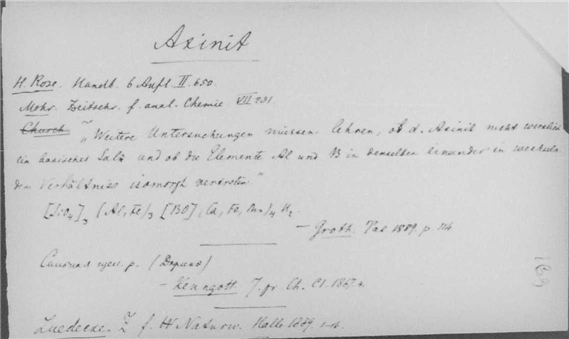 Axinit
H. Rose. Handb. 6 Aufl. II. 650.
Mohr. Zeitschr. f. anal. Chemie VII 291
Church „Weitere Untersuchungen müssen lehren, ob d. Axinit nicht wirklich
ein basisches Salz und ob die Elemente Al und B in demselben einander in wechseln
dem Verhältniss isomorph vertreten"
[SiO4]3 (Al, Fe)3 [BO] Ca, Fe, Mn)4 H2.
— Groth. Tab 1889. p. 114
p. (
— Kenngott. J. pr. Ch. CI. 1867.
Luedecke. Z f. Naturw. Halle 1889. 1–